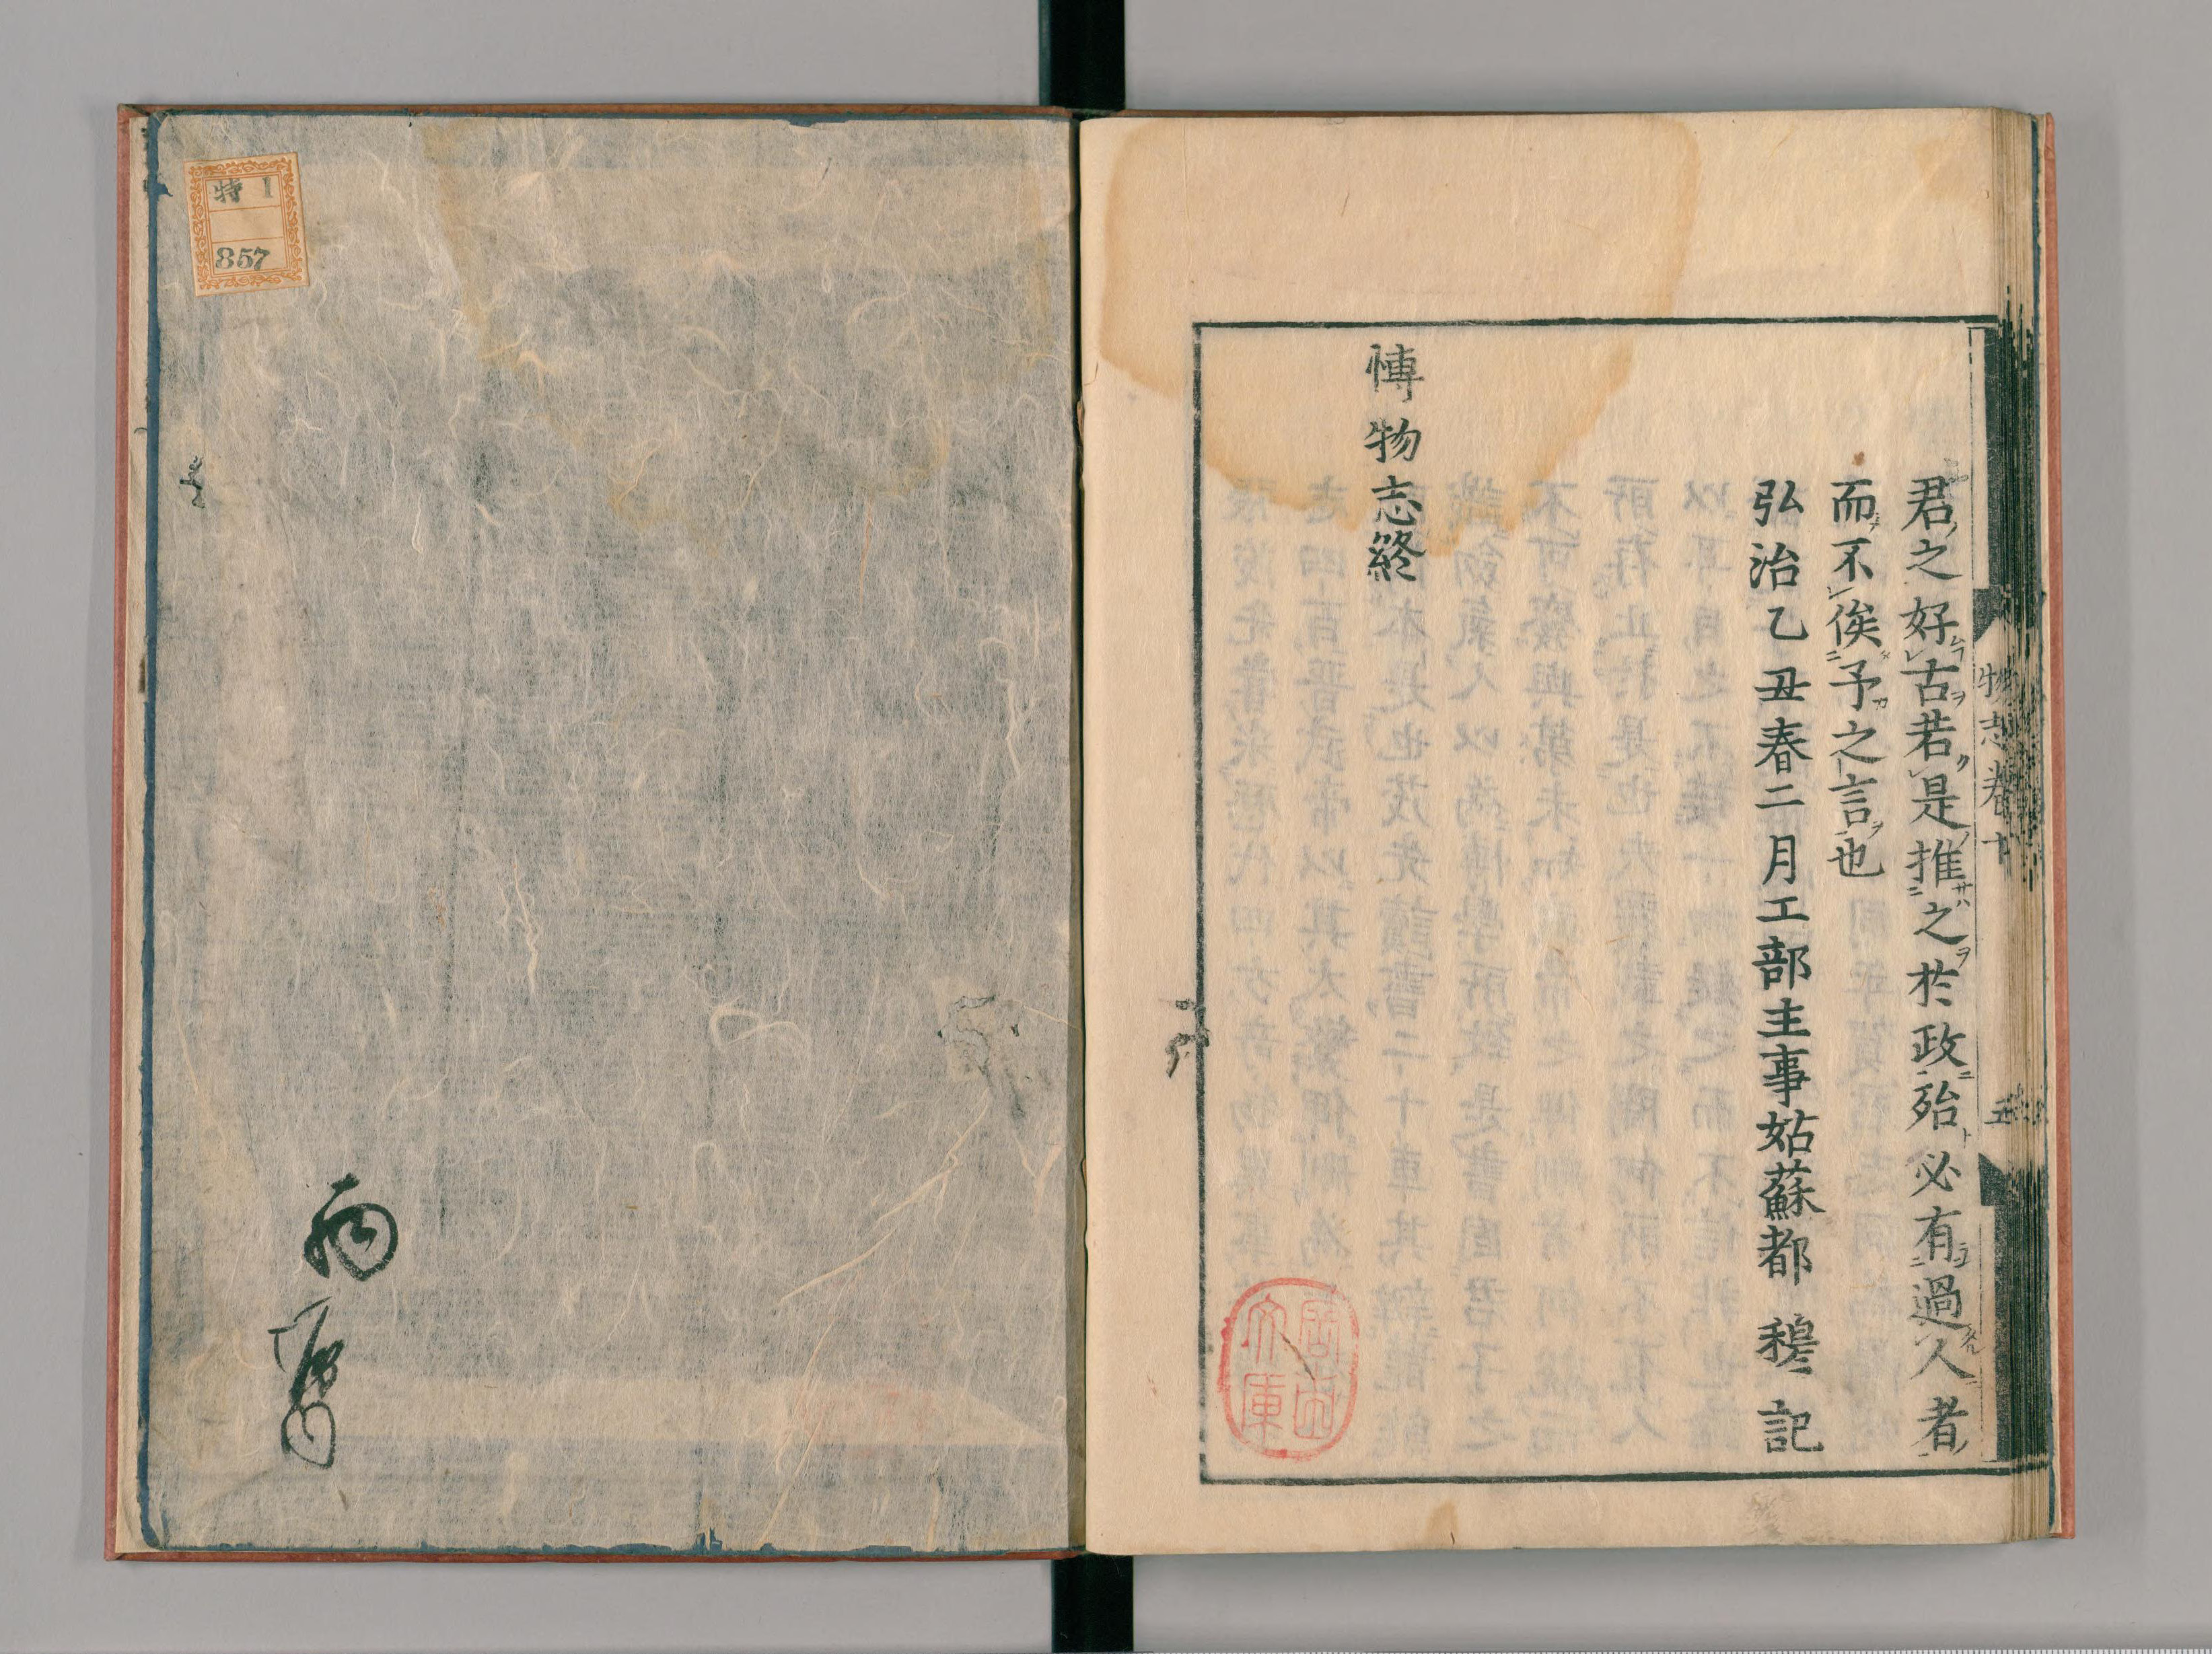 君之好古若是推之於政殆必有過人者
而不俟予之言也
弘治乙丑春二月工部主事姑蘇都 穆 記
博物志終
物志卷十
五
文庫
特 1
857